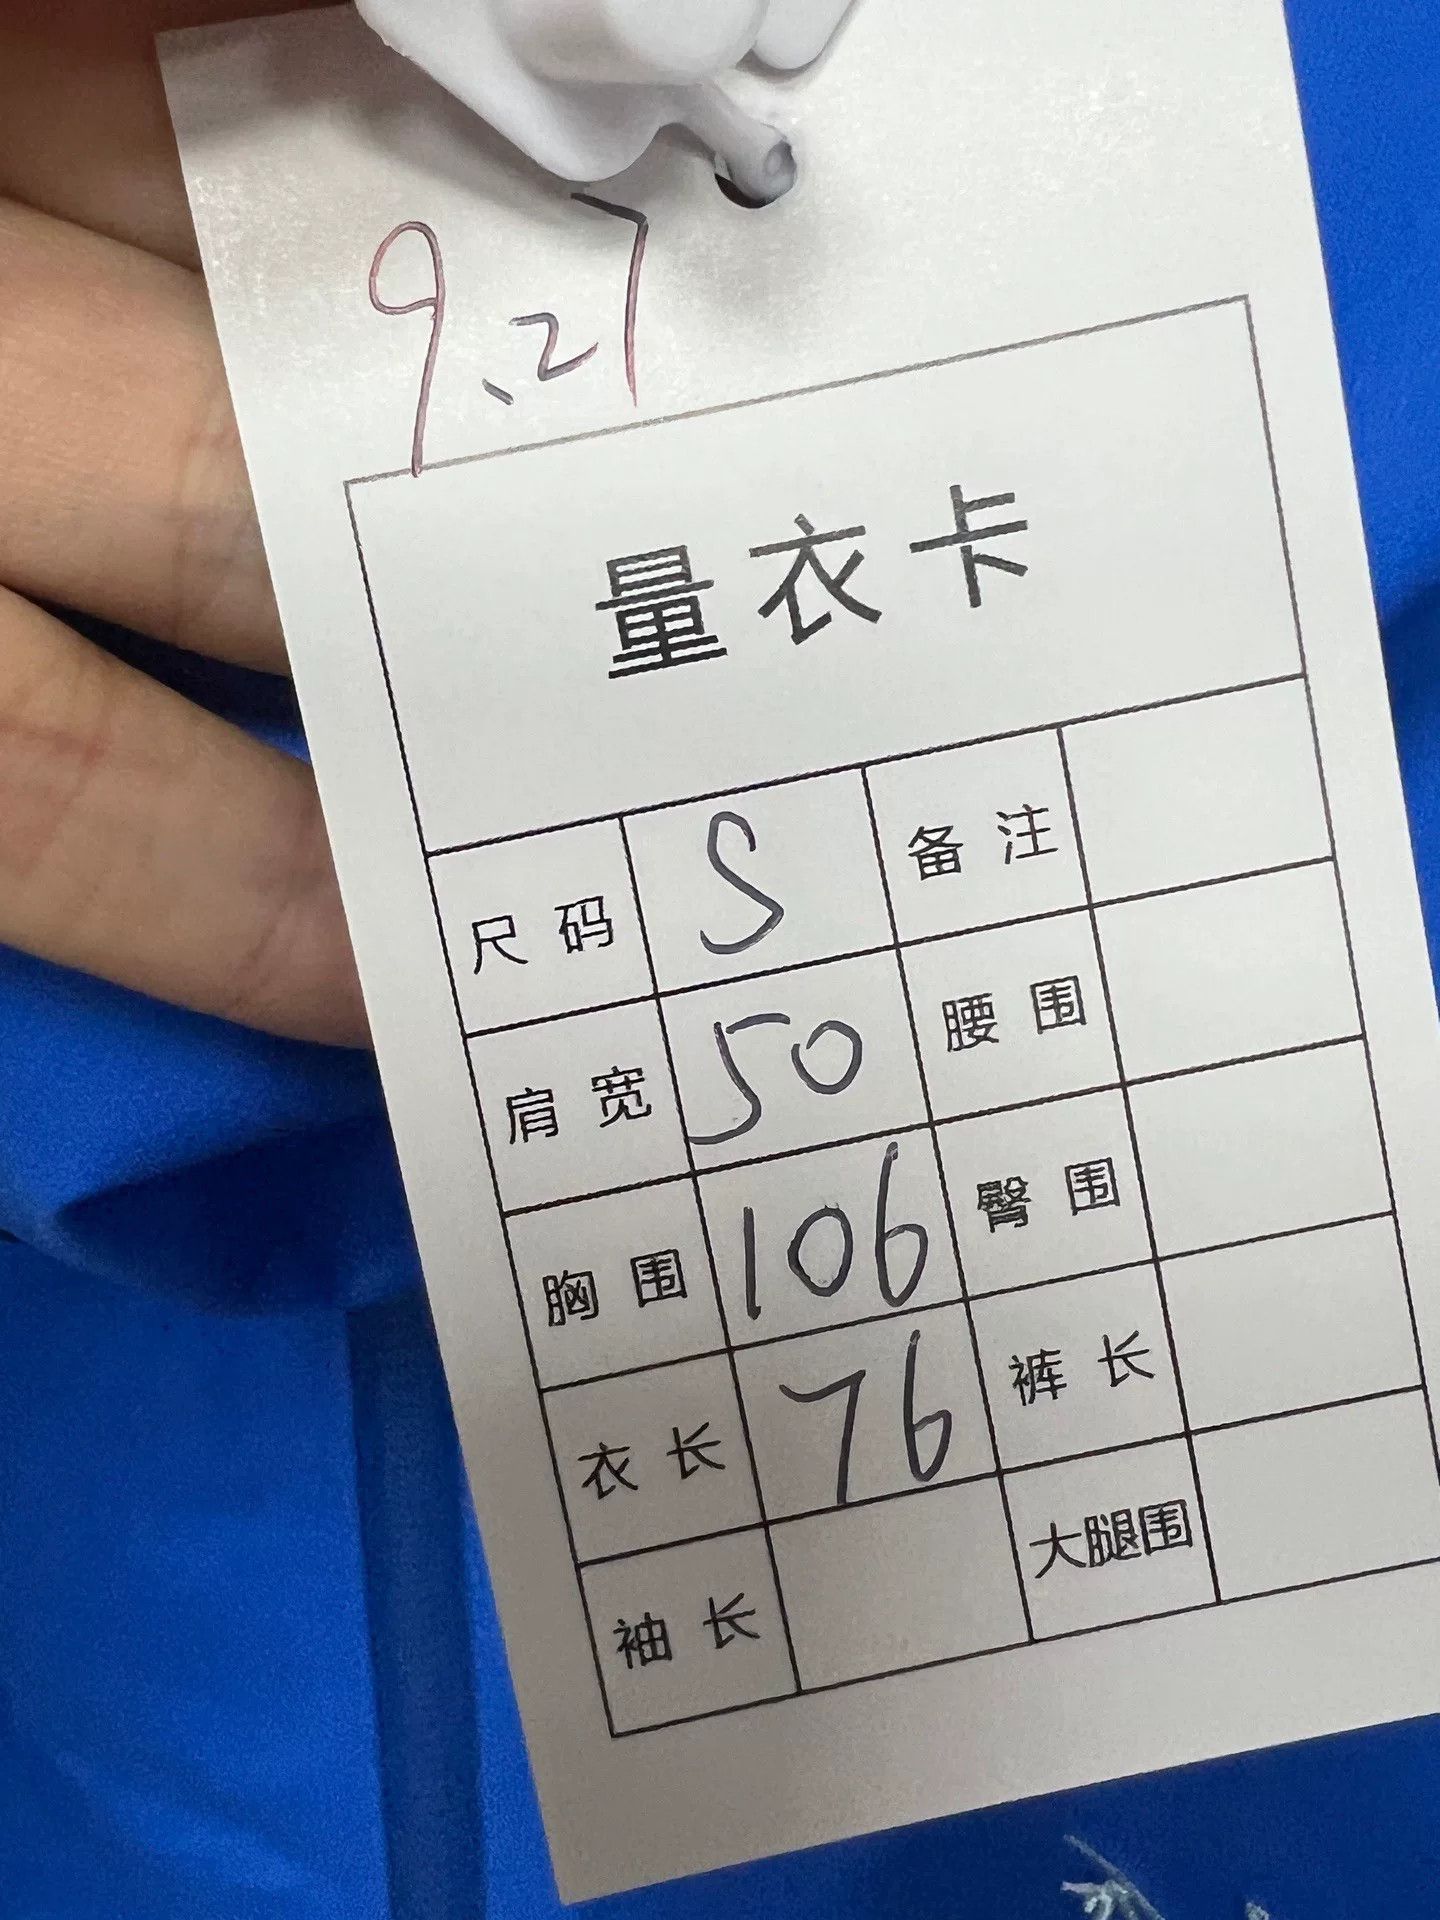 9.27
量衣卡
尺码 S 备注
肩宽 50 腰围
胸围 106 臀围
衣长 76 裤长
袖长 大腿围